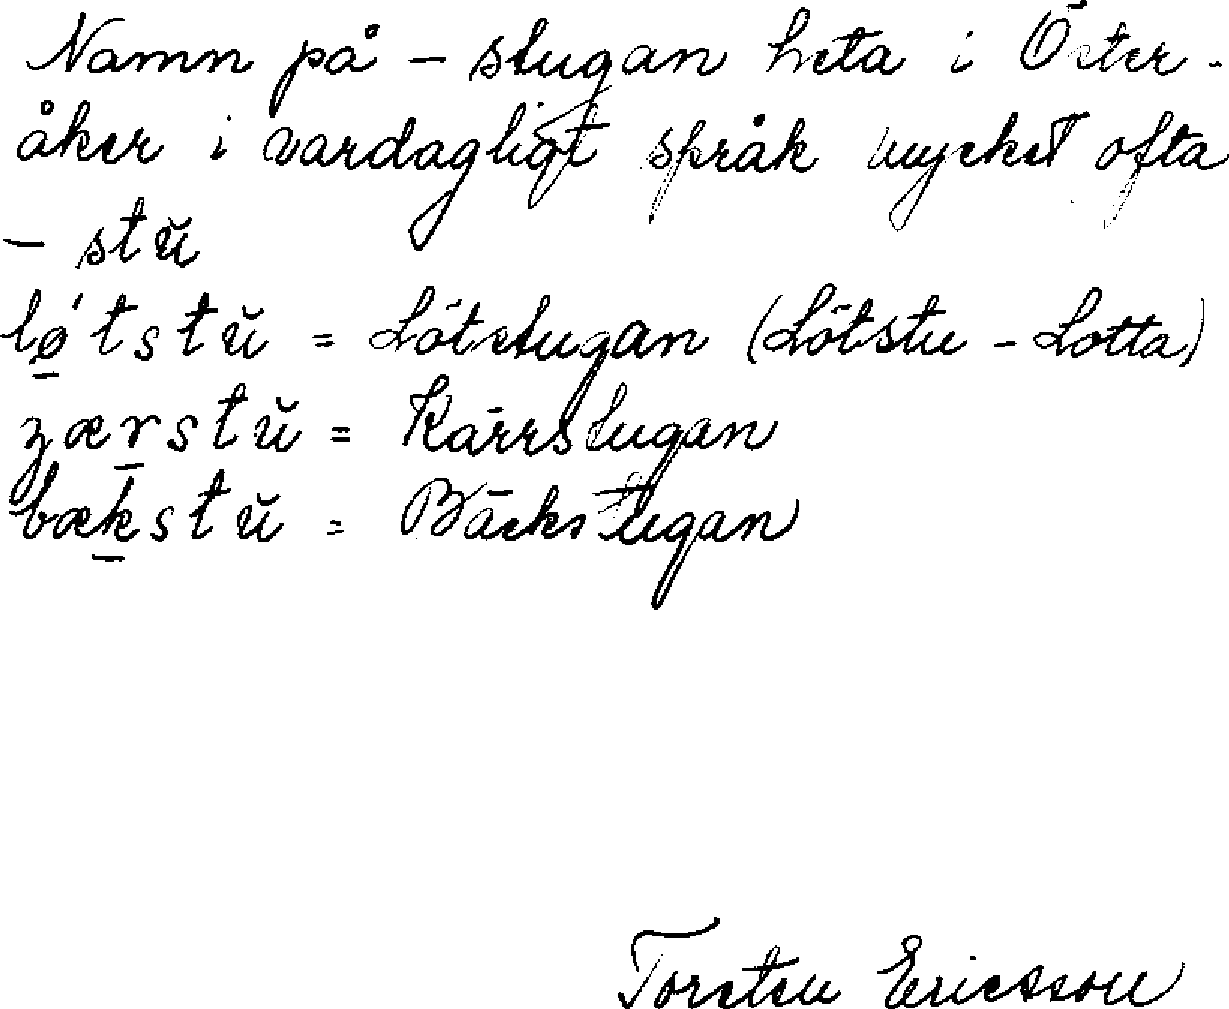 Namn på - stugan heta i Öster-
åker i vardagligt språk mycket ofta
- stŭ
lǿ̱tstŭ = Lötstugan (Lötstu - Lotta)
zæṟstŭ = Kärrstugan
bæḵstŭ = Bäckstugan
Torsten Ericsson